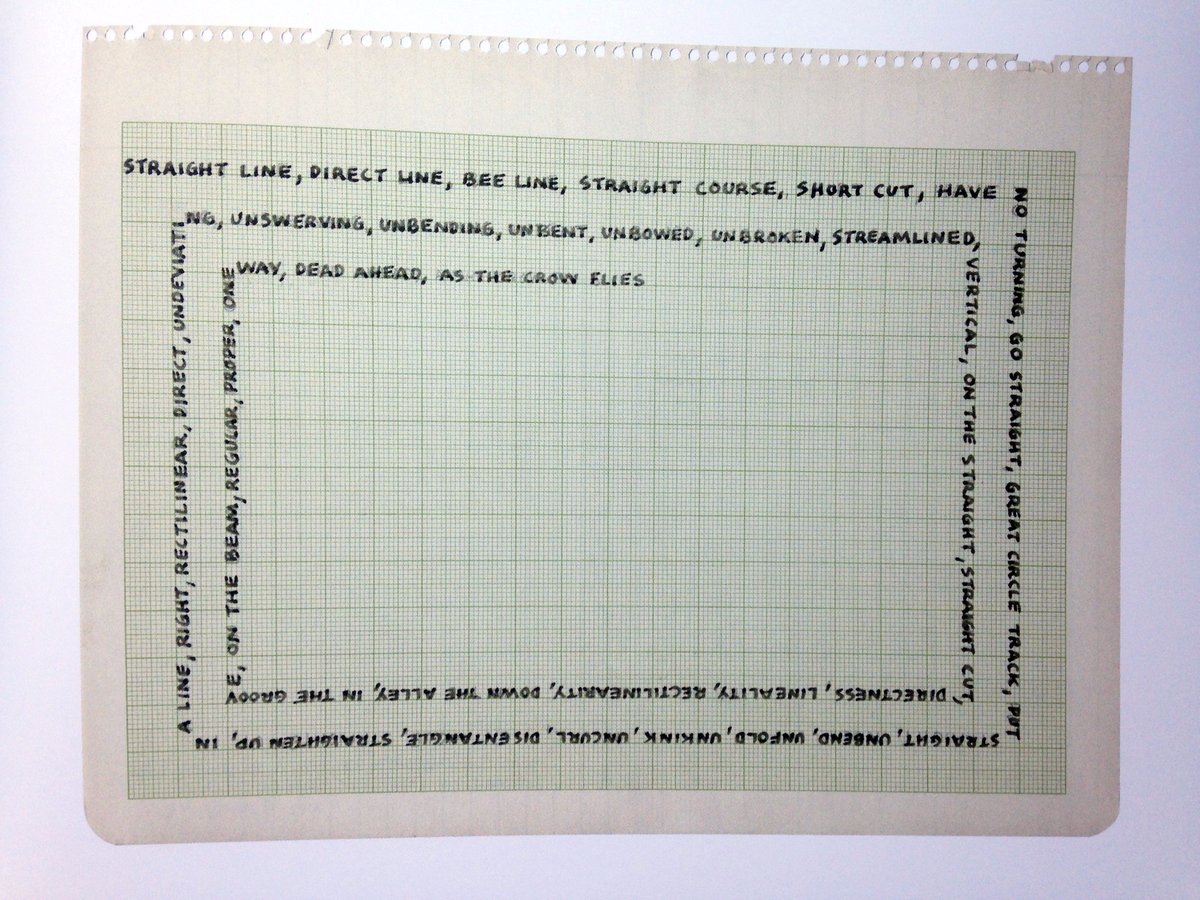 STRAIGHT LINE, DIRECT LINE, BEE LINE, STRAIGHT COURSE, SHORT CUT, HAVE
NO TURNING, GO STRAIGHT, GREAT CIRCLE TRACK, PUT
STRAIGHT, UNBEND, UNFOLD, UNKINK, UNCURL, DISENTANGLE, STRAIGHTEN UP, IN
A LINE, RIGHT, RECTILINEAR, DIRECT, UNDEVIATI
NG, UNSWERVING, UNBENDING, UNBENT, UNBOWED, UNBROKEN, STREAMLINED,
VERTICAL, ON THE STRAIGHT, STRAIGHT CUT,
DIRECTNESS, LINEALITY, RECTILINEARITY, DOWN THE ALLEY, IN THE GROOV
E, ON THE BEAM, REGULAR, PROPER, ONE
WAY, DEAD AHEAD, AS THE CROW FLIES